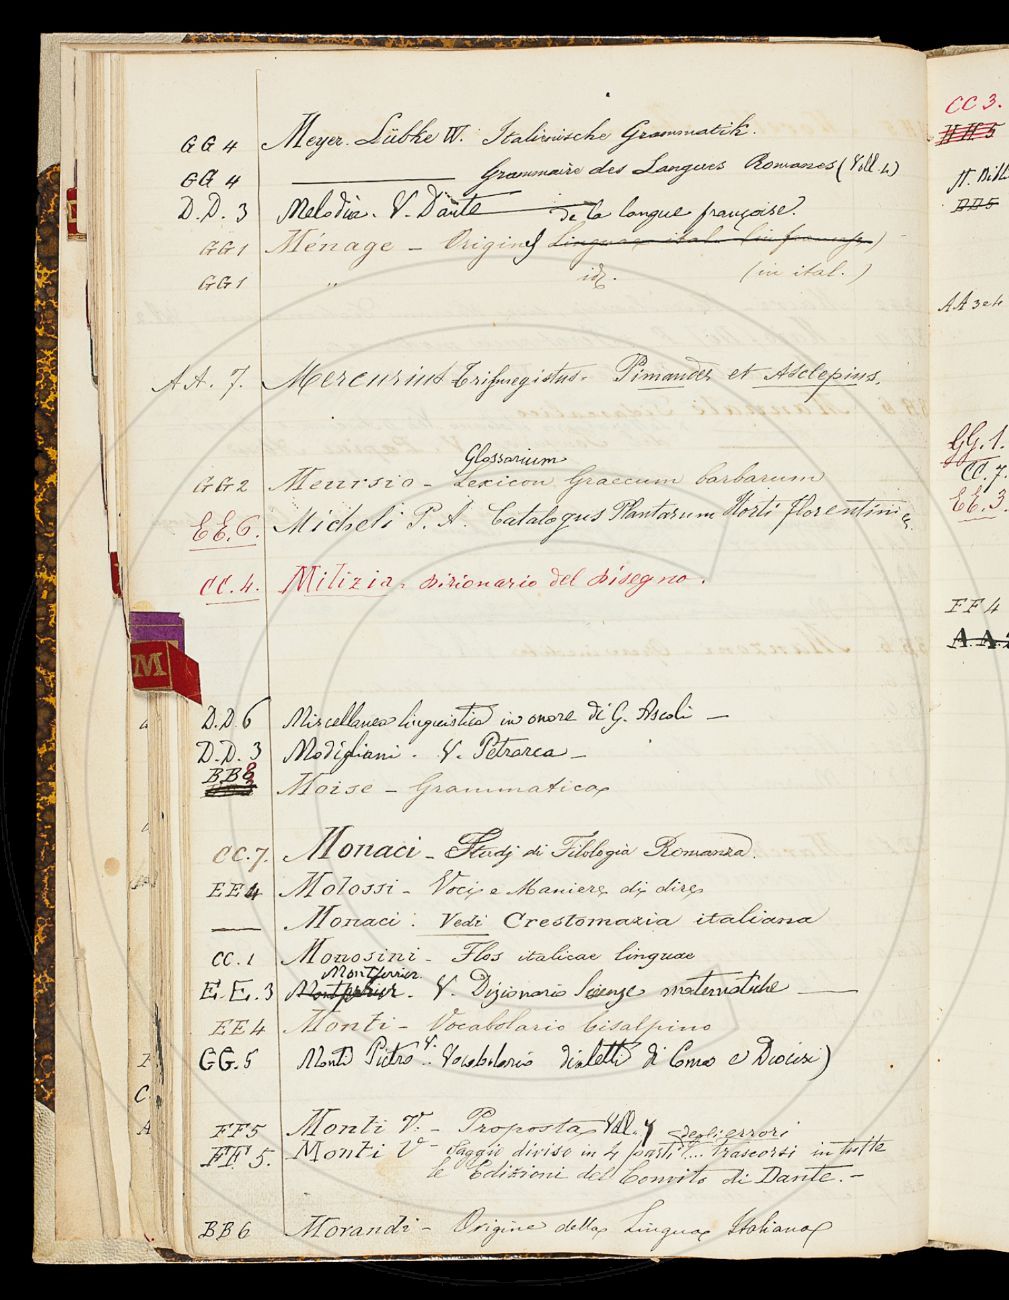 GG 4 Meyer. Lübke W. Italienische Grammatik.
GG 4 ———— Grammaire des Langues Romanes (Voll. 4)
D.D. 3 Melodia. V. Dante
de la langue françoise.
GG 1 Ménage — Origines
GG 1 " id. (in ital.)
AA. 7. Mercurius Trismegistus. Pimander et Asclepius.
Glossarium
GG 2 Meursio — Lexicon Graecum barbarum
EE. 6. Micheli P. A. Catalogus Plantarum Horti florentini
CC. 4. Milizia. Dizionario del Disegno.
M
D.D. 6 Miscellanea linguistica in onore di G. Ascoli —
D.D. 3 Modigliani. V. Petrarca —
BB
Moise — Grammatica
CC. 7. Monaci — Studj di Filologia Romanza.
EE 4 Molossi — Voci e Maniere di dire
—— Monaci: Vedi Crestomazia italiana
CC. 1 Monosini — Flos italicae linguae
Montferrier
E.E. 3 V. Dizionario Scienze matematiche ——
EE 4 Monti — Vocabolario Cisalpino
GG. 5 Monti Pietro V. Vocabolario dialetti di Como e Diocesi)
FF 5 Monti V. — Proposta Voll. 7
degli errori
FF 5. Monti V — Saggio diviso in 4 parti ... trascorsi in tutte
le Edizioni del Convito di Dante. —
BB 6 Morandi — Origine della Lingua Italiana
CC 3.
HH 5
BB 5
AA 3
GG. 1.
CC. 7.
EE. 3.
FF 4
A.A.